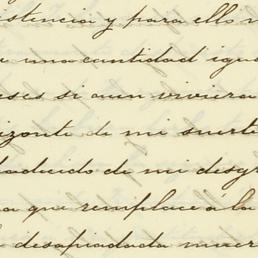 istencia y para ello n
una cantidad igua
eses si aun viviera
izonte de mi suerte
aducido de mi desgr
a que remplace á la
desapiadada muer